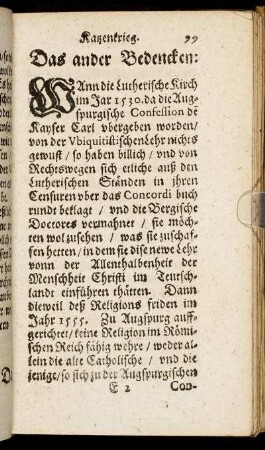 Katzenkrieg. 99
Das ander Bedencken:
WAnn die Lutherische Kirch
im Jar 1530. da die Aug-
spurgische Confession dē
Kayser Carl vbergeben worden/
von der Vbiquitistischen Lehr nichts
gewust / so haben billich / vnd von
Rechtswegen sich etliche auß den
Lutherischen Ständen in jhren
Censuren vber das Concordi buch
rundt beklagt / vnd die Bergische
Doctores vermahnet / sie möch-
ten wol zusehen / was sie zuschaf-
fen hetten / in dem sie dise newe Lehr
vonn der Allenthalbenheit der
Menschheit Christi im Teutsch-
landt einführen thätten. Dann
dieweil deß Religions friden im
Jahr 1555. Zu Augspurg auff-
gerichtet / keine Religion im Römi-
schen Reich fähig wehre / weder al-
lein die alte Catholische / vnd die
jenige / so sich zu der Augspurgischen
E 2 Con-